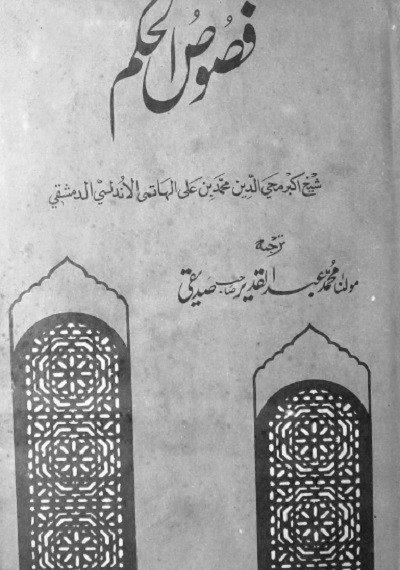 فصوص الحکم
شیخ اکبر محی الدین محمد بن علی الہاتمی الاندلسی الدمشقی
ترجمہ
مولٰنا محمد عبد القدیر صاحب صدیقی